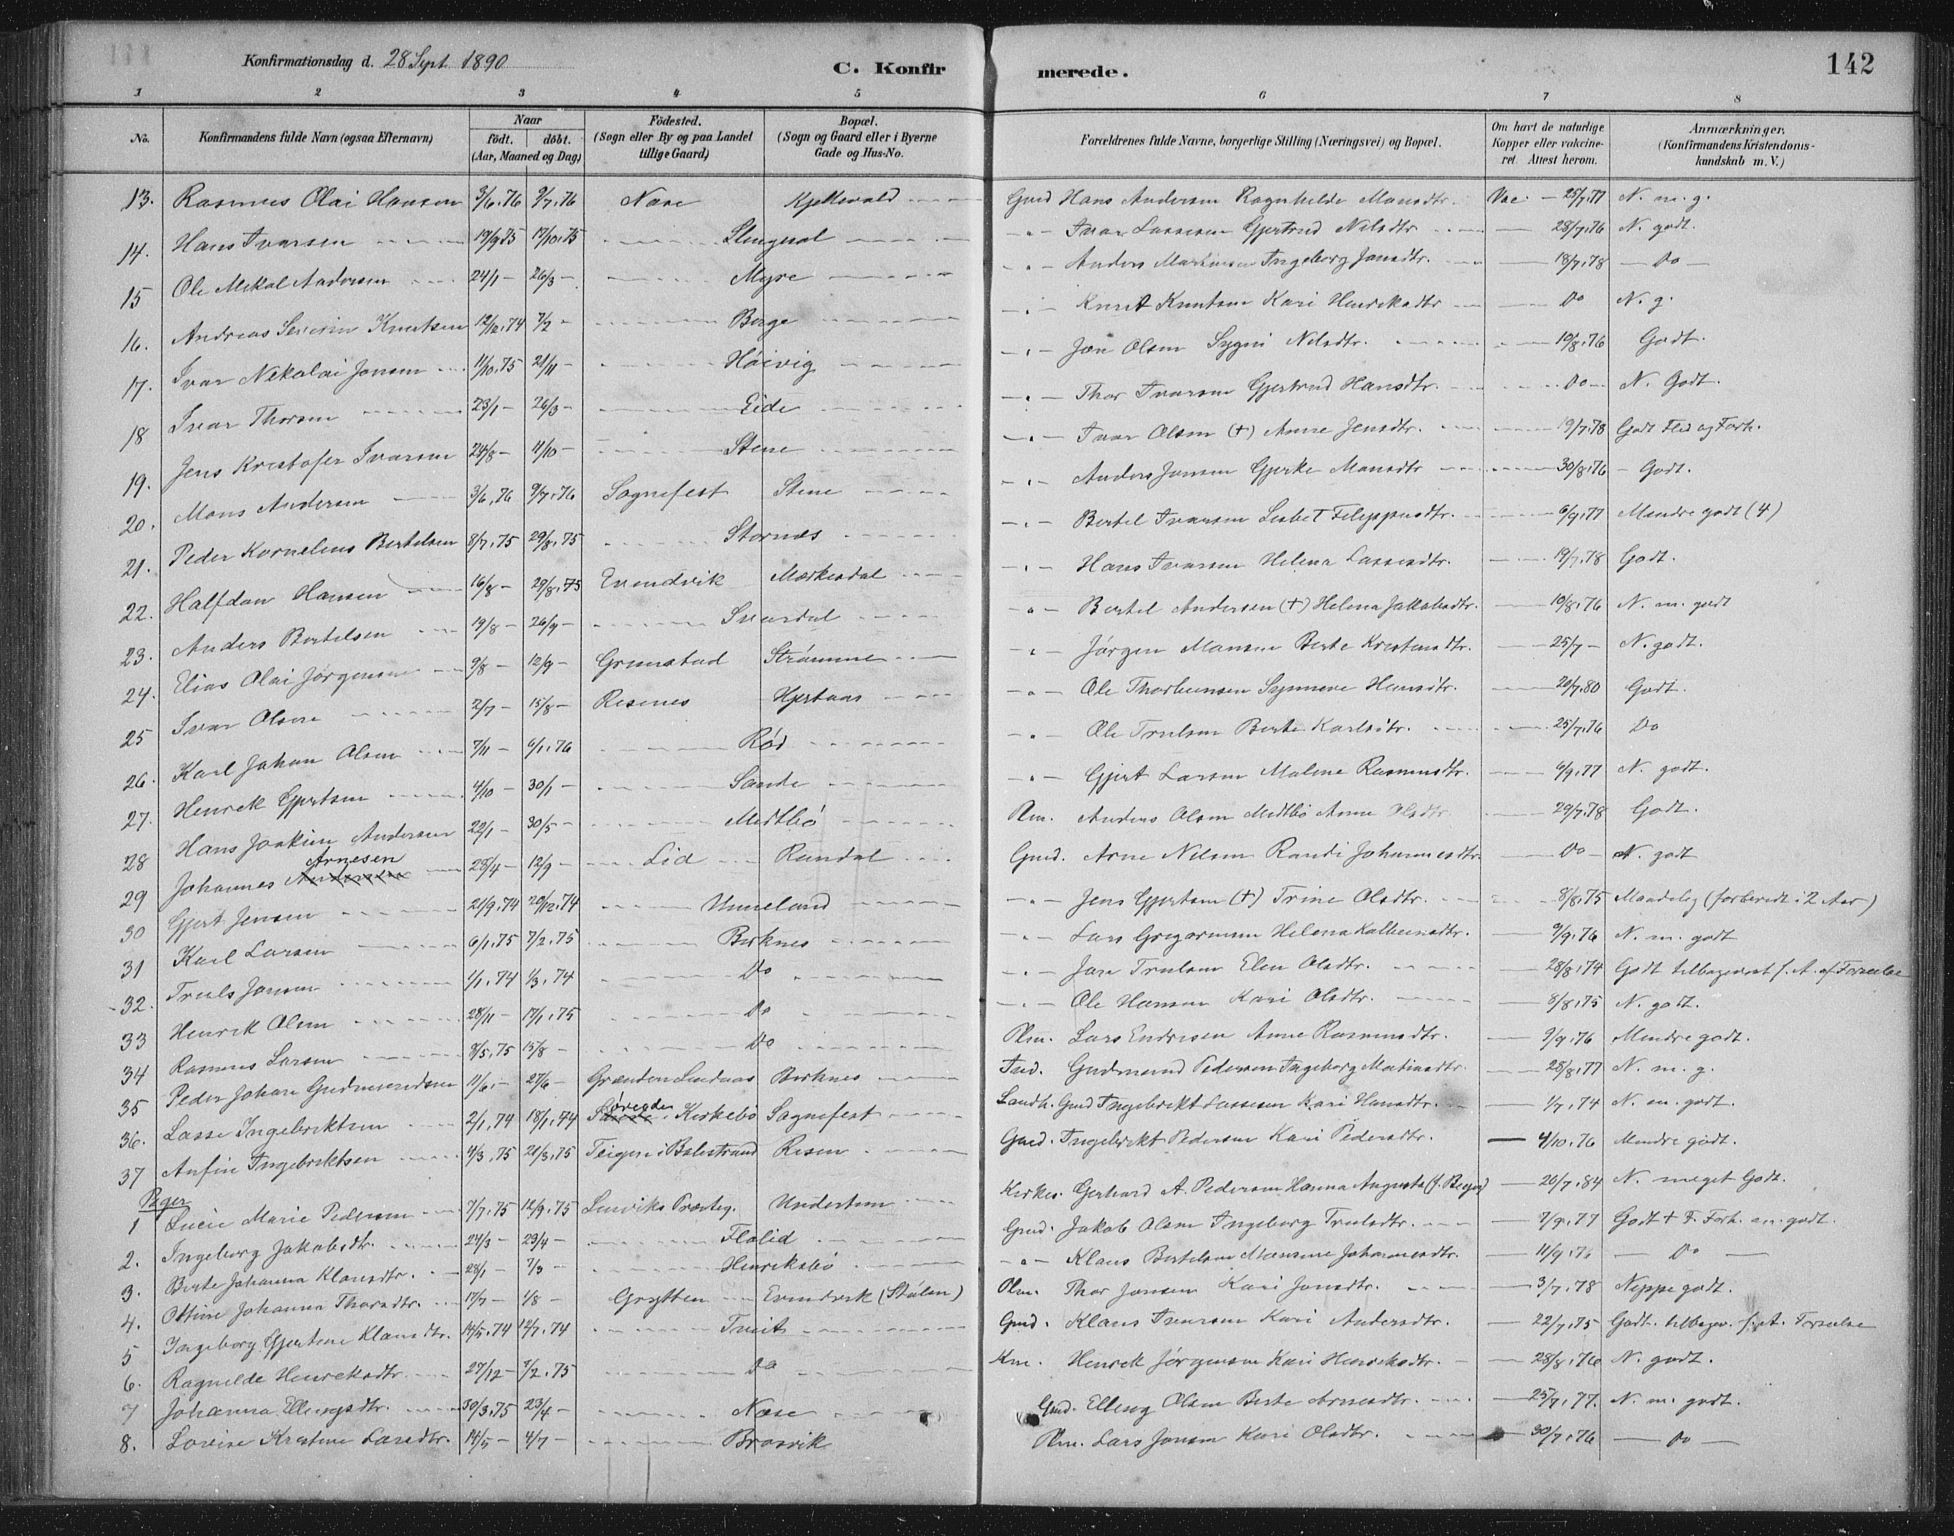 Konfirmationsdag d. 28 Sept. 1890
C. Konfirmerede.
142
1 2 3 4 5 6 7 8
No. Konfirmandens fulde Navn (ogsaa Efternavn) Naar födt. döbt. (Aar, Maaned og Dag) Födested. (Sogn eller By og paa Landet tillige Gaard) Bopæl. (Sogn og Gaard eller i Byerne Gade og Hus-No. Forældrenes fulde Navne, borgerlige Stilling (Næringsvei) og Bopæl. Om havt de naturlige Kopper eller vakcineret. Attest herom. Anmærkninger. (Konfirmandens Kristendomskundskab m. V.)
13. Rasmus Olai Hansen 3/6.76 9/7.76 Nase Kjellevold Gmd Hans Andersen Ragnhilde Monsdtr. Vac. 25/7.77 N. m. g.
14. Hans Ivarsen 19/9 75 17/10.75 Slengesol Ivar Lassesen Gjertrud Nilsdtr 28/7.76 N. godt.
15 Ole Mikal Andersen 24/1 - 26/3 - Myre Anders Martinsen Ingeborg Jonsdtr. 18/7.78 Do
16. Andreas Severin Knutsen 12/12.74 7/2 - Berge Knut Knutsen Kari Henriksdtr Do N. g.
17. Ivar Nikolai Jonsen 11/10.75 21/11 Høivig Jon Olsen Sygni Nilsdtr. 19/8.76 Godt.
18 Ivar Thorsen 23/1 - 26/3 - Eide Thor Ivarsen Gjertrud Hansdtr. Do N. Godt.
19. Jens Kristofer Ivarsen 24/8 - 11/10 - Stene Ivar Olsen (+) Anne Jensdtr. 19/7.78 Godt Flid og Forh.
20. Mons Andersen 3/6.76 9/7.76 Sognefest Stene Anders Jonsen Gjerke Monsdtr 30/8.76 Godt.
21. Peder Kornelius Bertelsen 8/7.75 29/8.75 Stornæs Bertel Ivarsen Lisbet Filippusdtr. 6/9.77 Mindre godt (4)
22. Halfdan Hansen 16/8 - 29/8.75 Evendvik Mærkesdal Hans Ivarsen Helena Lassesdtr. 19/7.78 Godt.
23. Anders Bertelsen 19/8 - 26/9 - Svardal Bertel Andersen (+) Helena Jakobsdtr. 10/8.76 N. m. godt
24. Elias Olai Jørgensen 9/8 - 12/9 - Grimstad Strømme Jørgen Monsen Berte Kristensdtr. 25/7 - N. godt.
25 Ivar Olsen 2/7 - 15/8 - Risenes Hjertaas Ole Thorbensen Synneve Hansdtr. 20/7.80 Godt.
26. Karl Johan Olsen 7/11 - 6/1.76 Rød Ole Trulsen Berte Karlsdtr. 25/7.76 Do
27. Henrik Gjertsen 4/10 - 30/1 - Sande Gjert Larsen Malene Rasmusdtr. 6/9.77 N. godt.
28 Hans Joakim Andersen 22/1 - 30/5 - Midtbø Plm. Anders Olsen Midtbø Anne Olsdtr 29/7.78 Godt.
29 Johannes Arnesen 28/4 - 12/9 Lid Rundal Gmd. Arne Nilsen Randi Johannesdtr Do N. godt
30 Gjert Jensen 21/9.74 20/12.74 Unneland Jens Gjertsen (+) Trine Olsdtr. 8/8.75 Maadelig (forberedt i 2 Aar)
31 Karl Larsen 6/1.75 7/2.75 Birknes Lars Gregoriusen Helena Kolbeinsdtr. 9/9.76 N. m. godt
32. Truls Jonsen 1/1.74 1/3.74 Do Jon Trulsen Elen Olsdtr. 28/8.74 Godt tilbagevist f. A. af Forseelse
33 Henrik Olsen 28/11 - 17/1.75 Do Ole Hansen Kari Olsdtr. 8/8.75 N. godt.
34 Rasmus Larsen 8/5.75 15/8 - Do Plm. Lars Endresen Anne Rasmusdtr. 9/9.76 Mindre godt.
35 Peder Johan Gudmundsen 11/6. - 27/6 - Grænden Lindaas Birknes Ind. Gudmund Pedersen Ingeborg Martinsdtr. 28/8.77 N. m. g.
36. Lasse Ingebriktsen 2/1.74 18/1.74 Kirkebø Sognefest Landh. Gmd Ingebrikt Lassesen Kari Hansdtr. 1/7.74 N. m. godt.
37 Anfin Ingebriktsen 4/3.75 21/3.75 Teigen i Balestrand Risen Gmd. Ingebrikt Pedersen Kari Pedersdtr. 4/10.76 Mindre godt.
Piger
1 Lucie Marie Pedersen 7/7.75 12/9.75 Lurviks Præsteg. Undertun Kirkes. Gerhard A. Pedersen Hanna Augusta (f. Beyer) 20/7.84 N. meget Godt.
2. Ingeborg Jakobsdtr. 24/3 - 23/4 - Flolid Gmd. Jakob Olsen Ingeborg Trulsdtr. 7/9.77 Godt + F. Forh. m. godt.
3. Berte Johanna Klausdtr. 28/1 - 7/3 - Henriksbø Klaus Bertelsen Mansine Johannesdtr. 11/9.76 Do
4. Ottine Johanna Thorsdtr. 17/7 - 1/8 - Grytten Evendvik (Stølen) Plm. Thor Jonsen Kari Jonsdtr. 3/7.78 Neppe godt.
5 Ingeborg Gjertine Klausdtr. 14/5.74 12/7.74 Tveit Gmd. Klaus Iversen Kari Andersdtr. 22/7.75 Godt. tilbagev. f. A. Forseelse
6. Ragnilde Henriksdtr. 27/12 - 7/2.75 Do Km. Henrik Jørgensen Kari Henriksdtr. 28/8.76 N. godt.
7 Johanna Ellingsdtr. 30/3.75 23/4 - Nase Gmd. Elling Olsen Berte Arnesdtr 25/7.77. N. m. godt.
8. Lovise Kristine Larsdtr. 14/5 - 4/7 - Brosvik Plm. Lars Jonsen Kari Olsdtr. 30/7.76 Do